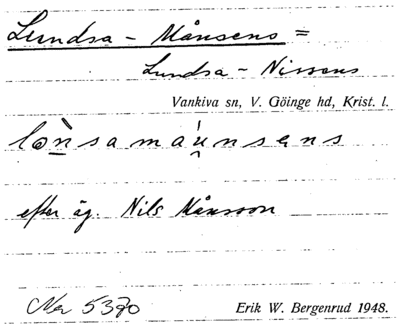 Lundsa - Månsens =
Lundsa - Nissens
Vankiva sn, V. Göinge hd, Krist. l.
lò̱nsama̍u̯nsens
efter äg. Nils Månsson
5370
Erik W. Bergenrud 1948.